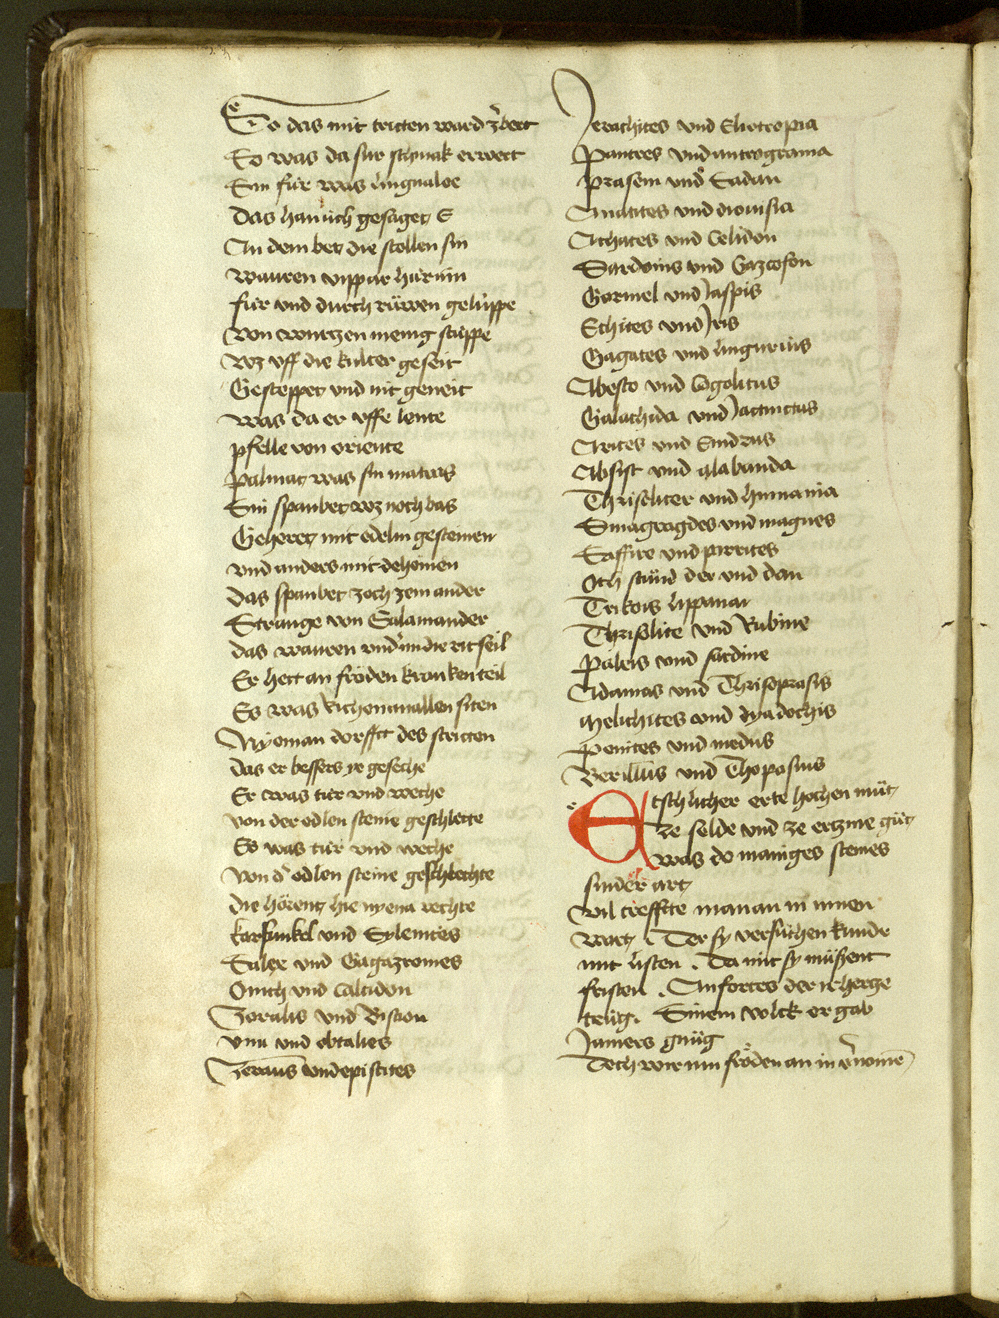 So das mit tritten ward zerbert
So was da sur schmak erwert
Sin für was lingnaloe
Das han uch gesaget E
An dem bet die stollen sin
Wauren vippar hürnin
für und durch rüwen gelüppe
Von wurtzen menig stüppe
Wz uff die kulter geseit
Gesteppet und nit geneit
Was da er uffe lente
pfelle von oriente
Palmat was sin matras
Sin spanbet wz noch bas
Geheret mit edeln gesteinen
und anders mit dehainen
das spanbet zoch zem ander
Strange von Salamander
das wauren under im die ritseil
Er hett an fröden kranken teil
Es was richent allen siten
Nyeman dorfft des stritten
das er bessers ye gesehe
Er was tür und weche
von der edlen steine geschlette
Es was tür und weche
Von der edlen steine geschlechte
die hörent hie nyena rechte
karfunkel und Sylenites
Balex und Gagatromes
Onich und Calcidon
Coralis und Bestion
Unn und obtalies
Ceraunis und epistites
Jerachites und Eliotropia
Pantres und antrograma
prasem und Sadan
Ematites und dionisia
Achates und Celidon
Sardonis und Gazcofon
Gornel und Jaspis
Echites und Jris
Gagates und lingurius
Abesto und Cegolitus
Galachida und Jacinctus
Orites und Eindrus
Absist und alabanda
Thrisoliter und hienania
Smaragdes und magnes
Saffire und pirrites
Och stünd der und dan
Turkois lipparia
Thrisolite und Rubine
Paleis und sardine
Adamas und Thrisoprasis
Melichites und dyadochis
Penites und medus
Berillus und Thopasius
Etschlicher erte hochen müt
Ze selde und ze ertznie güt
was do maniges steines
sunder art
Vil crefffte man an in innen
wart . Der sy versüchen kunde
mit listen . Da mit sy müsent
fristen . Anfortes der in herze
trüg . Sinem volck er gab
Jamers gnüg
Doch wie nun fröden an in vernomen